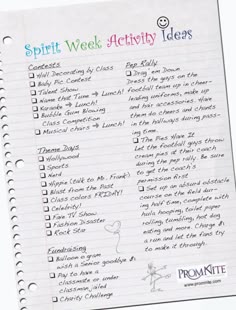 Spirit Week Activity Ideas
Contests
Hall Decorating by Class
Baby Pic Contest
Talent Show
Name that Tune → Lunch!
Karaoke → Lunch!
Bubble Gum Blowing
Class Competition
Musical chairs → Lunch!
Theme Days
Hollywood
Sports
Nerd
Hippie (talk to Mr. Frank)
Blast from the Past
Class colors FRIDAY!
Celebrity!
Fave TV Show
Fashion Disaster
Rock Star
Fundraising
Balloon a gram
wish a Senior goodbye $1
Pay to have a
classmate or under
classman jailed
Charity Challenge
Pep Rally
Drag 'em Down
Dress the guys on the
football team up in cheer-
leading uniforms, make up
and hair accessories. Have
them do cheers and chants
in the hallways during pass-
ing time.
The Pies Have It
Let the football guys throw
cream pies at their coach
during the pep rally. Be sure
to get the coach's
permission first
Set up an absurd obstacle
course on the field dur-
ing half time, complete with
hula hooping, toilet paper
rolling, tumbling, hot dog
eating and more. Charge $1
a run and let the fans try
to make it through.
PROMNITE
www.promnite.com